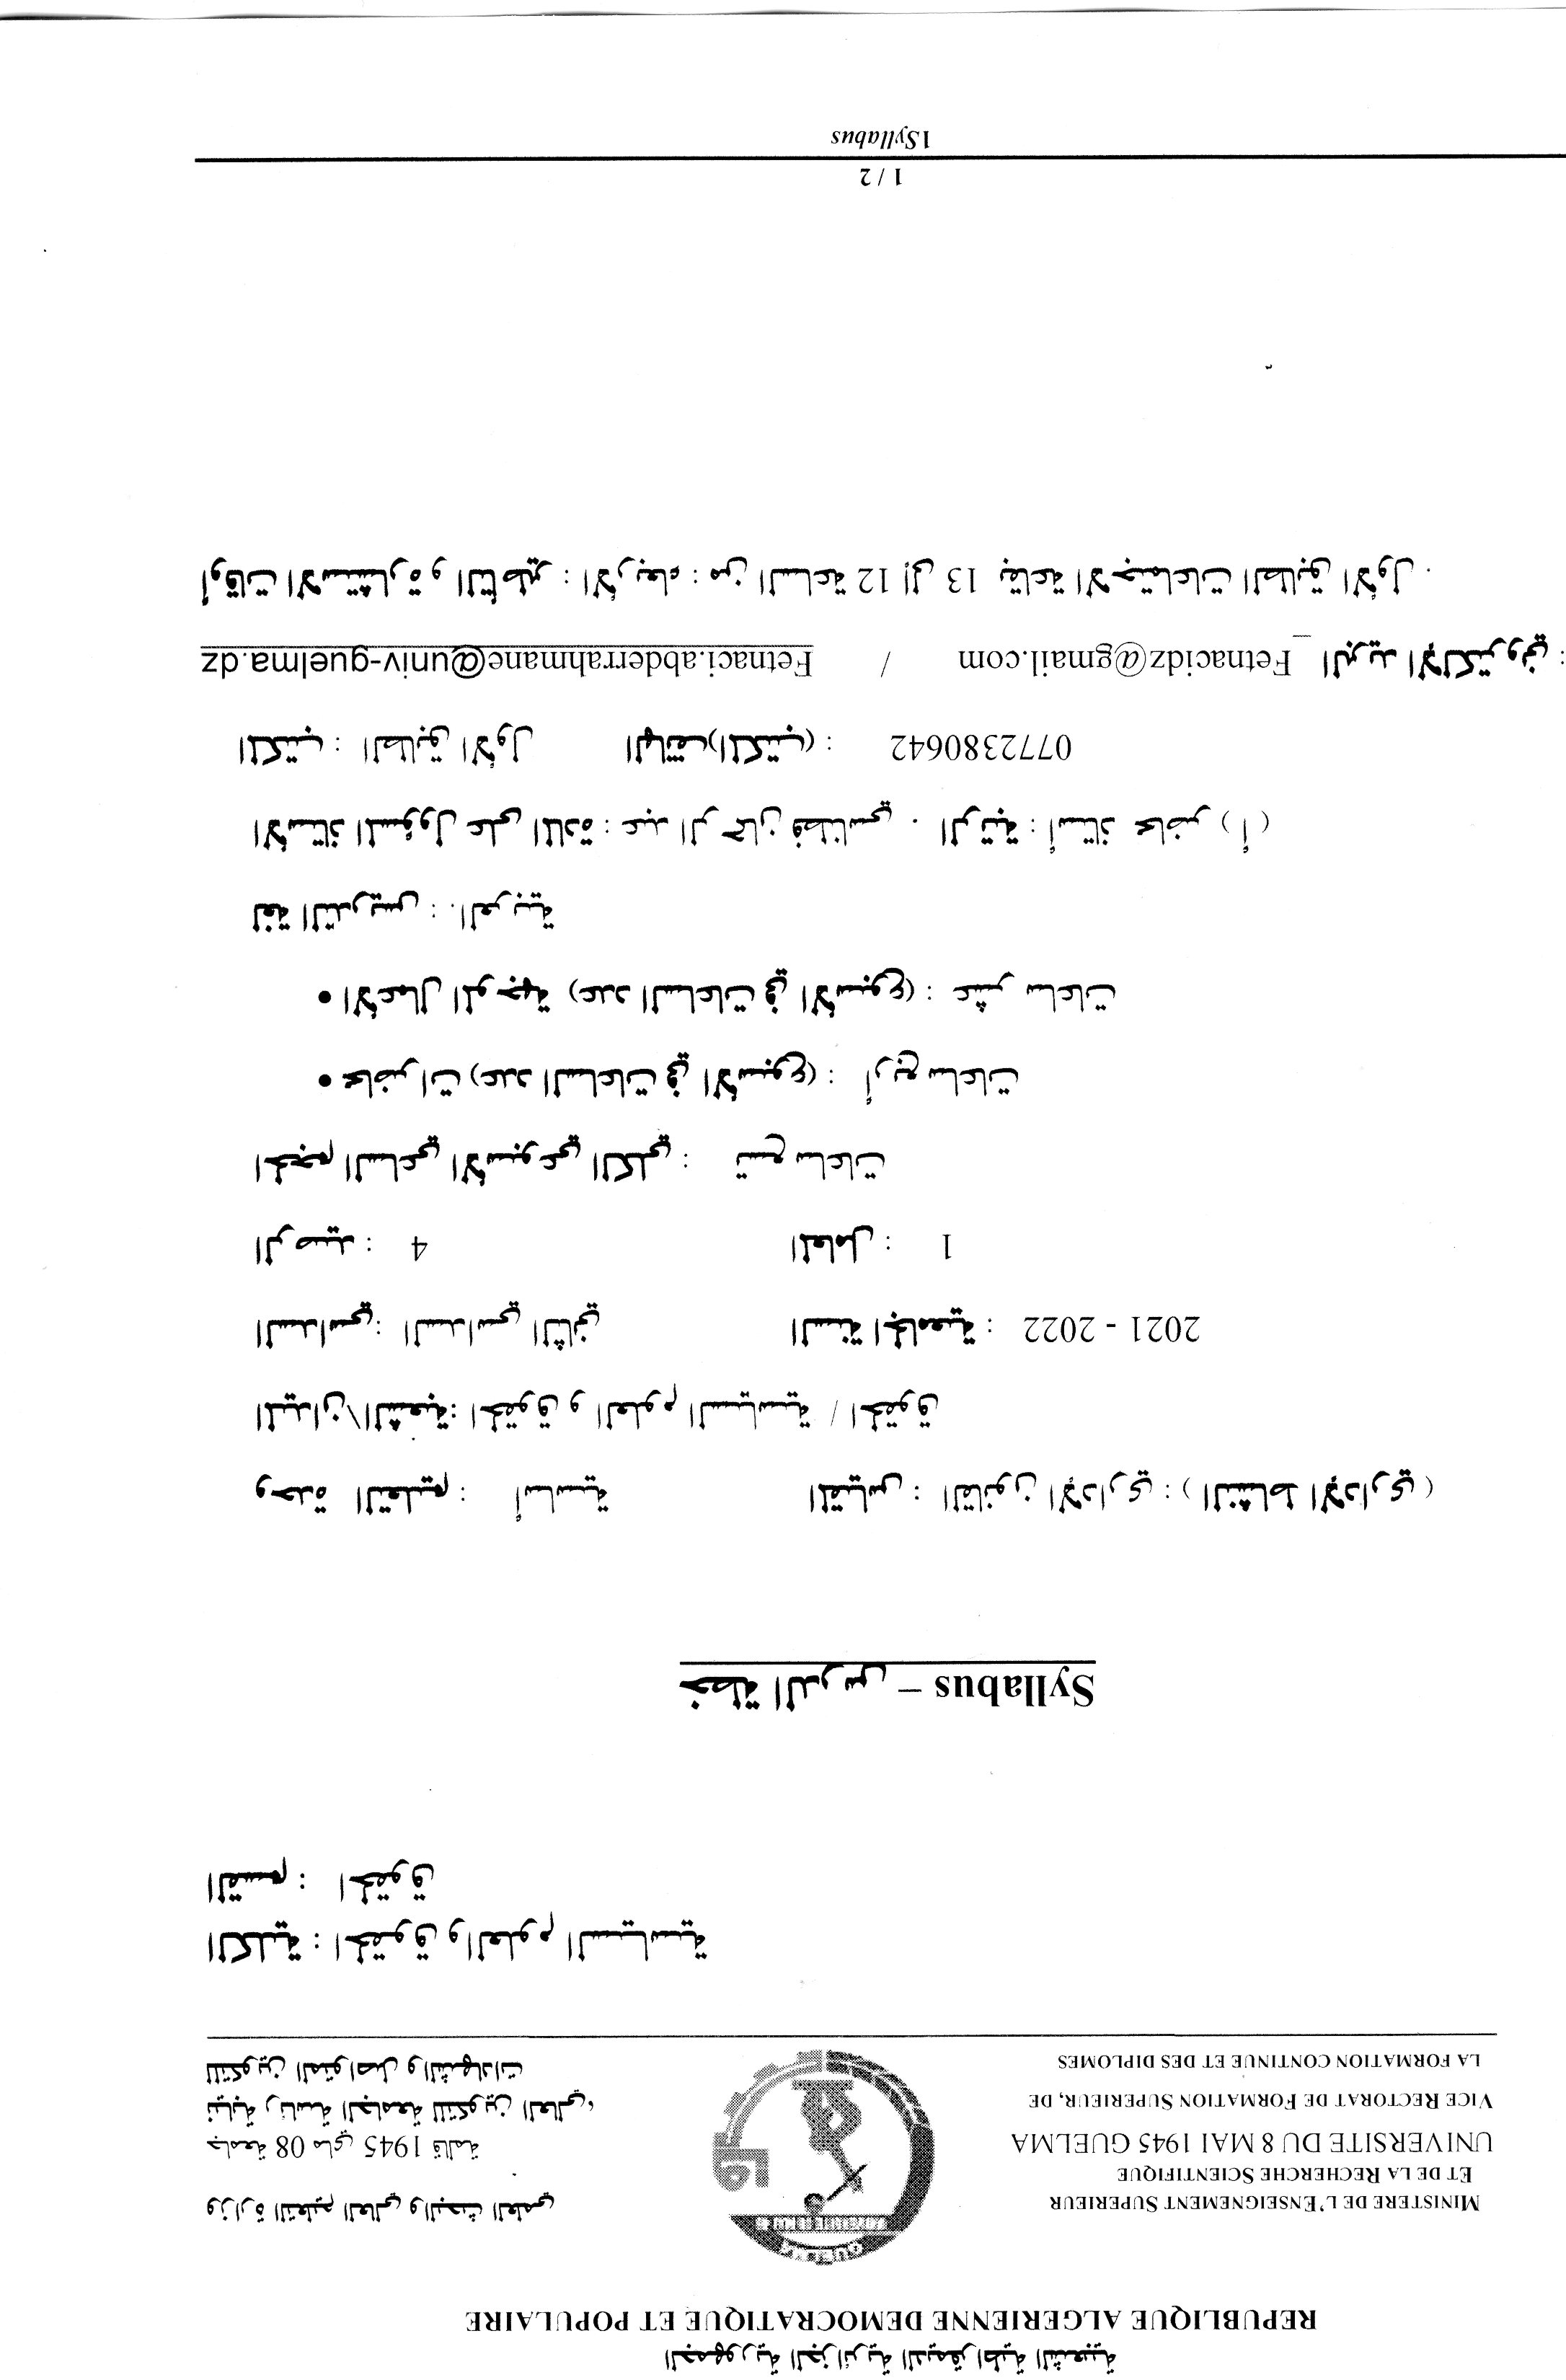 الجمهورية الجزائرية الديمقراطية الشعبية
REPUBLIQUE ALGERIENNE DEMOCRATIQUE ET POPULAIRE
MINISTERE DE L'ENSEIGNEMENT SUPERIEUR
ET DE LA RECHERCHE SCIENTIFIQUE
UNIVERSITE DU 8 MAI 1945 GUELMA
VICE RECTORAT DE FORMATION SUPERIEUR, DE
LA FORMATION CONTINUE ET DES DIPLOMES
GUELMA
UNIVERSITE 08 MAI 45
وزارة التعليم العالي والبحث العلمي
جامعة 08 ماي 1945 قالمة
نيابة رئاسة الجامعة للتكوين العالي،
للتكوين المتواصل والشهادات
الكلية : الحقوق والعلوم السياسية
القسم : الحقوق
خطة الدرس – Syllabus
وحدة التعليم : أساسية المقياس : القانون الإداري : ( النشاط الإداري )
الميدان\الشعبة: الحقوق و العلوم السياسية / الحقوق
السداسي: السداسي الثاني السنة الجامعية : 2021 - 2022
الرصيد : 4 المعامل : 1
الحجم الساعي الأسبوعي الكلي : تسع ساعات
• محاضرات (عدد الساعات في الأسبوع) : أربع ساعات
• الأعمال الموجهة (عدد الساعات في الأسبوع) : عشر ساعات
لغة التدريس : .العربية
الأستاذ المسؤول على المادة : عبد الرحمان فطناسي . الرتبة : أستاذ محاضر ( أ )
المكتب : الطابق الأول الهاتف(المكتب) : 0772380642
البريد الإلكتروني : Fetnacidz@gmail.com / Fetnaci.abderrahmane@univ-guelma.dz
أوقات الاستشارة و التأطير : الأربعاء : من الساعة 12 إلى 13 بقاعة الاجتماعات الطابق الأول .
1 / 2
1Syllabus